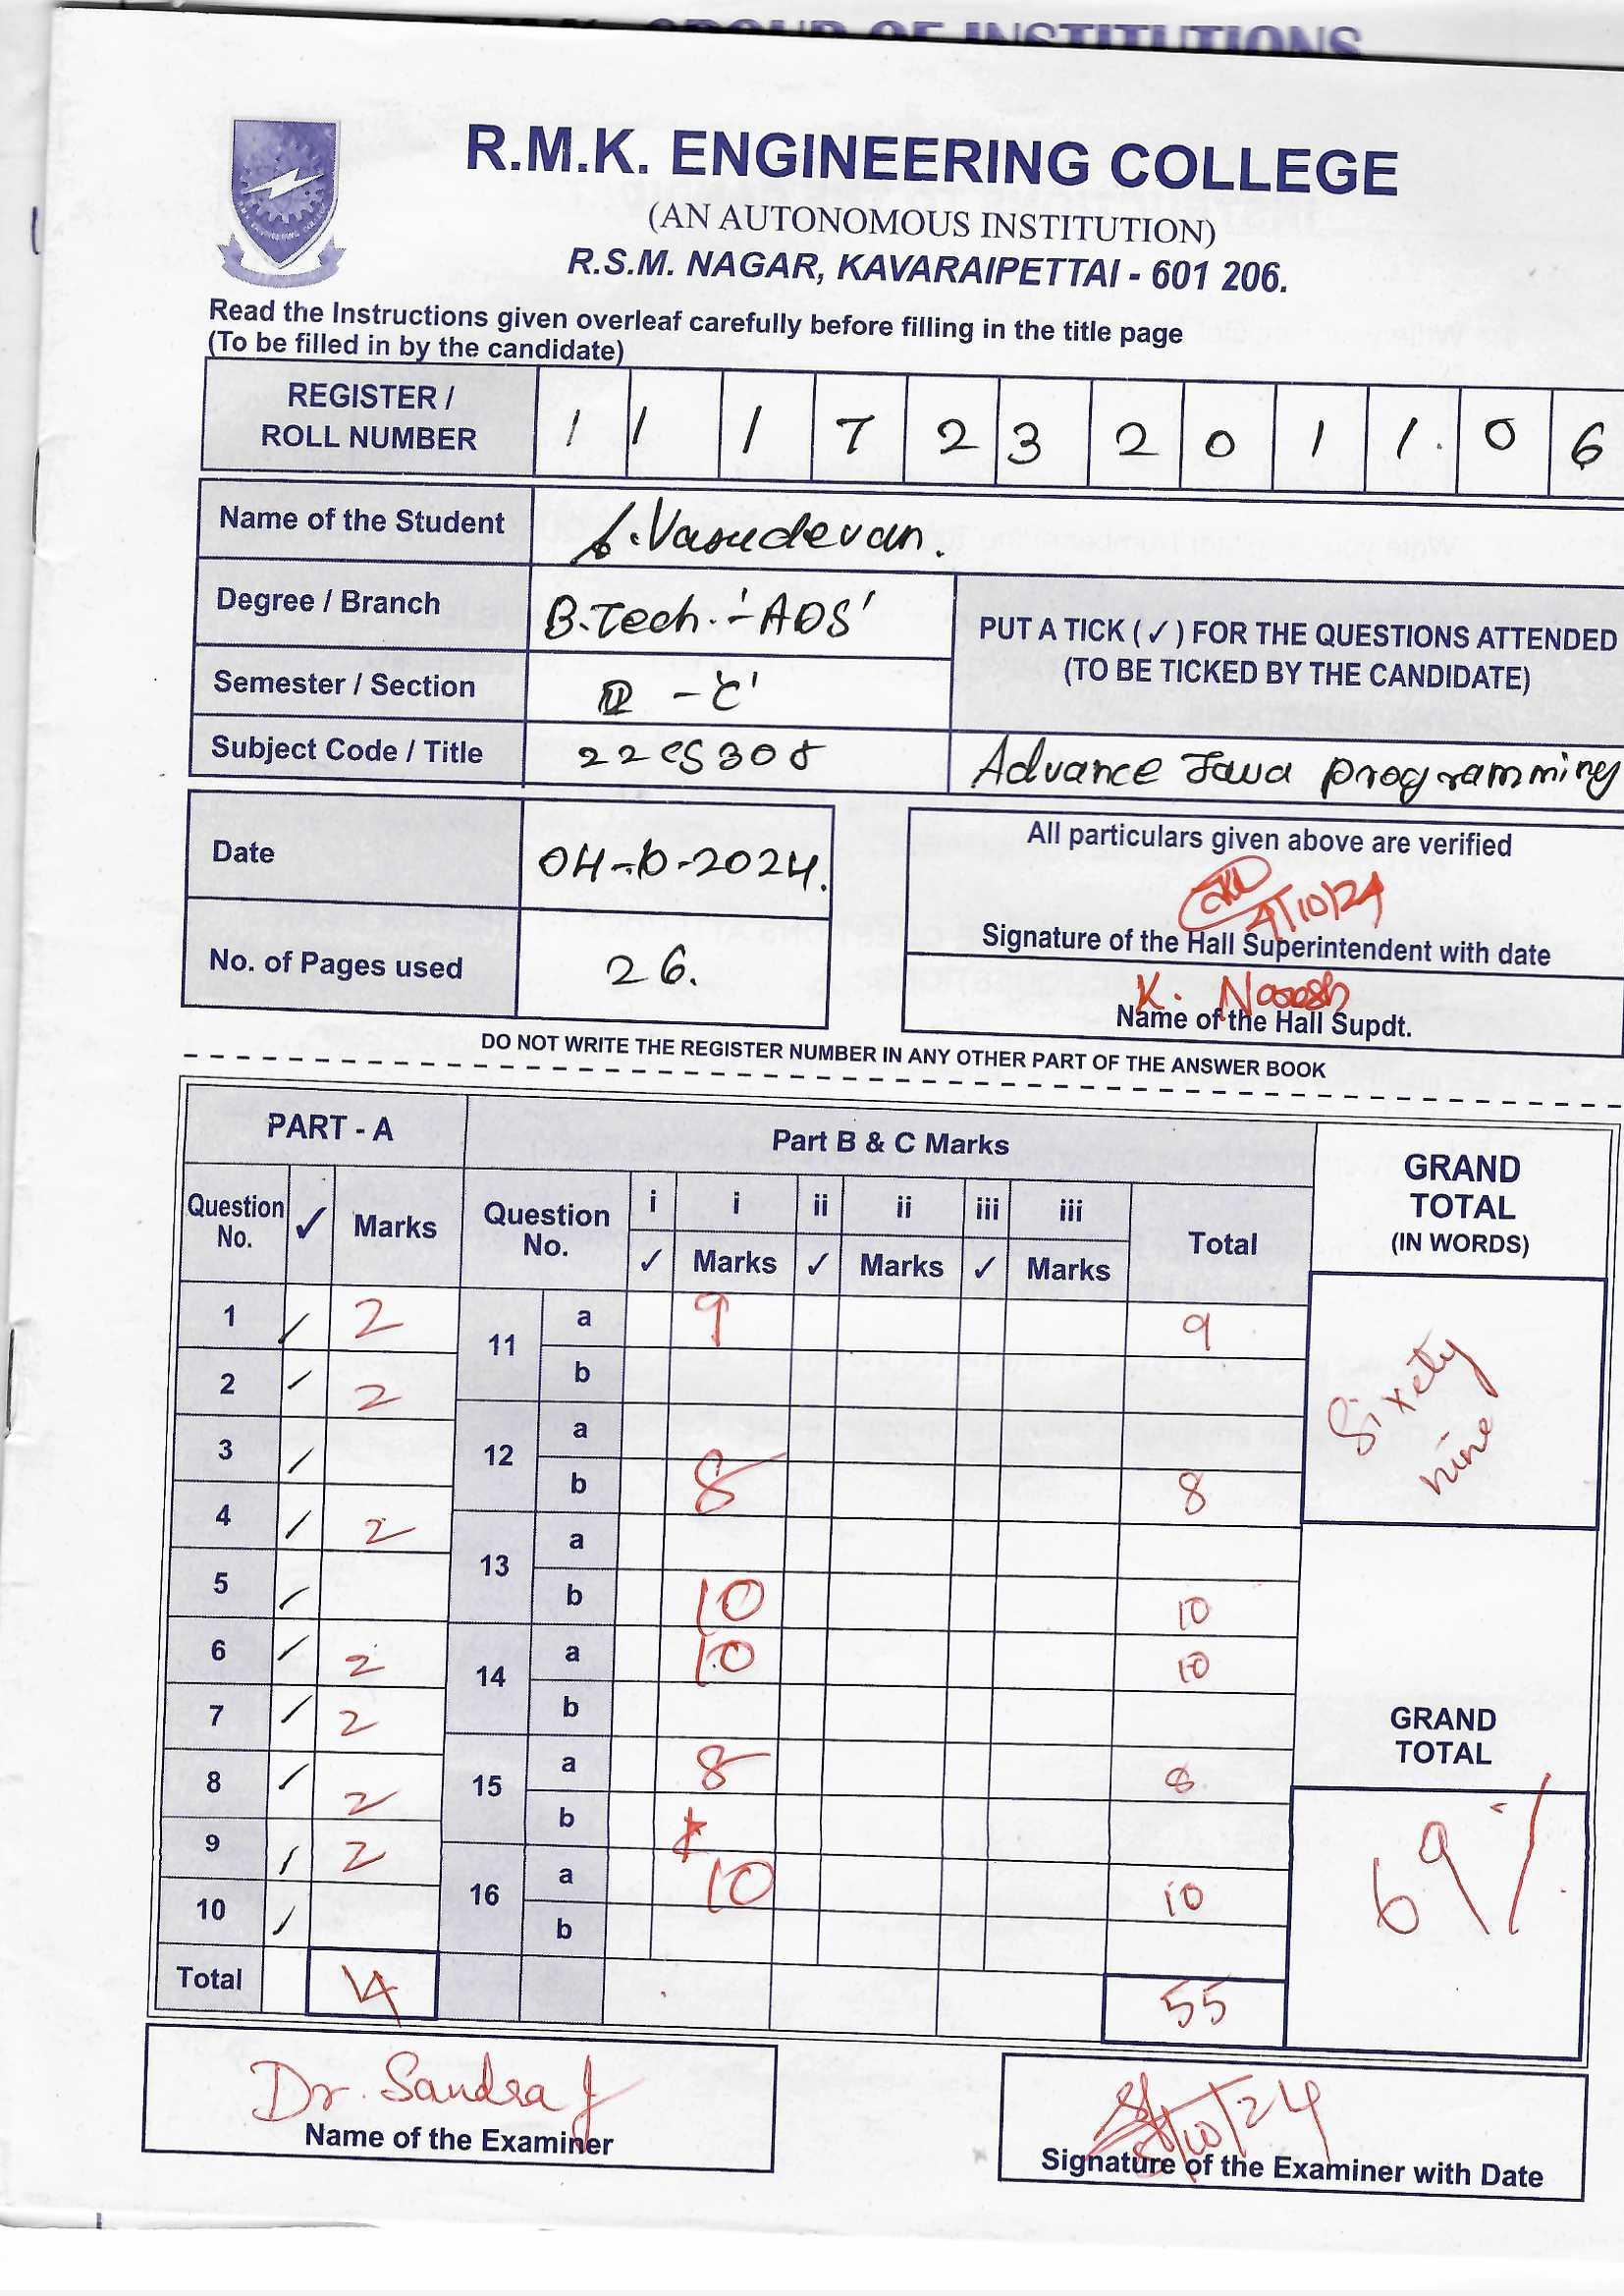 R.M.K. ENGINEERING COLLEGE
(AN AUTONOMOUS INSTITUTION)
R.S.M. NAGAR, KAVARAIPETTAI - 601 206.
Read the Instructions given overleaf carefully before filling in the title page
(To be filled in by the candidate)
REGISTER / ROLL NUMBER 1 1 1 7 2 3 2 0 1 1 0 6
Name of the Student S.Vasudevan.
Degree / Branch B.Tech.-'ADS'
PUT A TICK (✓) FOR THE QUESTIONS ATTENDED
(TO BE TICKED BY THE CANDIDATE)
Semester / Section - 'C'
Subject Code / Title 22CS308 Advance Java programming
Date 04-10-2024.
All particulars given above are verified
4/10/24
Signature of the Hall Superintendent with date
No. of Pages used 26.
K.
Name of the Hall Supdt.
DO NOT WRITE THE REGISTER NUMBER IN ANY OTHER PART OF THE ANSWER BOOK
PART - A Part B & C Marks GRAND TOTAL (IN WORDS)
Question No. ✓ Marks Question No. i ✓ i Marks ii ✓ ii Marks iii ✓ iii Marks Total
1 ✓ 2 11 a 9 9
2 ✓ 2 b
3 ✓ 12 a
Sixety nine
4 ✓ 2 b 8 8
5 ✓ 13 a
b 10 10
6 ✓ 2 14 a 10 10
7 ✓ 2 b
GRAND TOTAL
8 ✓ 2 15 a 8 8
9 ✓ 2 b
10 ✓ 16 a 10 10
b
69%
Total 14 55
Dr. Sandra J
Name of the Examiner
8/10/24
Signature of the Examiner with Date